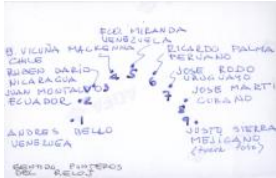 FCO. MIRANDA
VENEZUELA
B. VICUÑA MACKENNA
CHILE
RICARDO PALMA
PERUANO
RUBEN DARIO
NICARAGUA
JOSE RODO
URUGUAYO
JUAN MONTALVO
ECUADOR
JOSE MARTI
CUBANO
ANDRES BELLO
VENEZUELA
JUSTO SIERRA
MEJICANO
SENTIDO PUNTEROS
DEL RELOJ
1
2
3
4
5
6
7
8
9